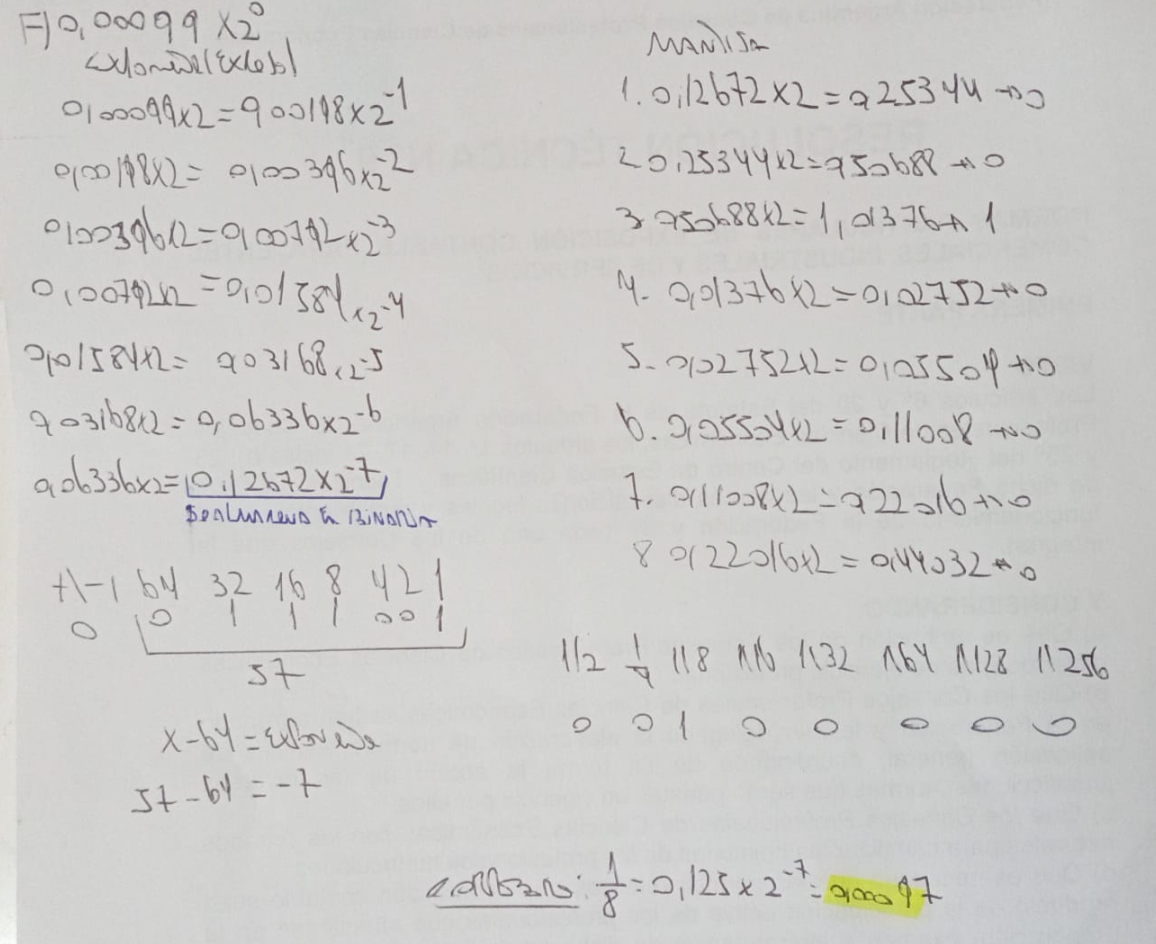 F) 0,00099 x2^0
Exponente (Exceso)
0,00099x2=0,00198x2^-1
0,00198x2= 0,00396x2^-2
0,00396x2=0,00792x2^-3
0,00792x2 =0,01584x2^-4
0,01584x2= 0,03168x2^-5
0,03168x2=0,06336x2^-6
0,06336x2=0,12672x2^-7
BINARIA
+/-1 64 32 16 8 4 2 1
0 0 1 1 1 0 0 1
57
x-64=Exponente
57-64=-7
MANTISA
1. 0,12672x2=0,25344→0
2 0,25344x2=0,50688→0
3. 0,50688x2=1,01376→1
4- 0,01376x2=0,02752→0
5- 0,02752x2=0,05504→0
6. 0,05504x2=0,11008→0
7. 0,11008x2=0,22016→0
8 0,22016x2=0,44032→0
1/2 1/4 1/8 1/16 1/32 1/64 1/128 1/256
0 0 1 0 0 0 0 0
1/8=0,125x2^-7=0,00097